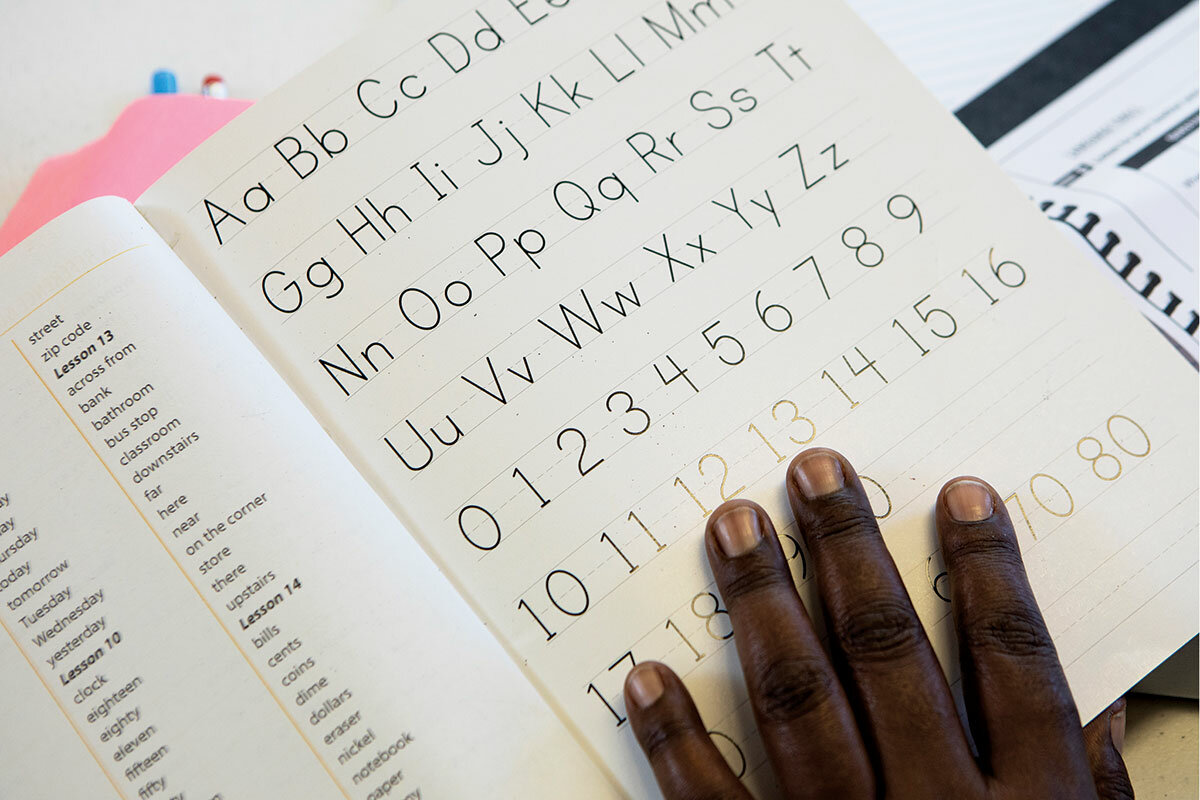 day
today
tomorrow
Tuesday
Wednesday
yesterday
Lesson 10
clock
eighteen
eighty
eleven
fifteen
fifty
street
zip code
Lesson 13
across from
bank
bathroom
bus stop
classroom
downstairs
far
here
near
on the corner
store
there
upstairs
Lesson 14
bills
cents
coins
dime
dollars
eraser
nickel
notebook
paper
Aa Bb Cc Dd
Gg Hh Ii Jj Kk Ll Mm
Nn Oo Pp Qq Rr Ss Tt
Uu Vv Ww Xx Yy Zz
0 1 2 3 4 5 6 7 8 9
10 11 12 13 14 15 16
17 18
70 80